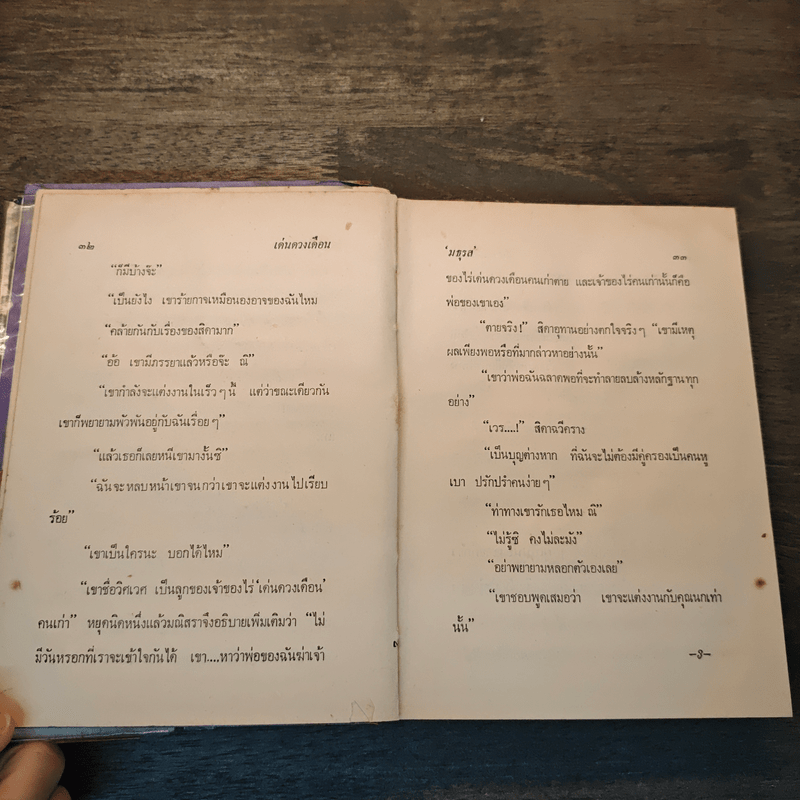 ๓๒ เด่นดวงเดือน
“ก็มีบ้างจ๊ะ”
“เป็นยังไง เขาร้ายกาจเหมือนองอาจของฉันไหม
“คล้ายกันกับเรื่องของสิตามาก”
“อ้อ เขามีภรรยาแล้วหรือจ๊ะ ณิ”
“เขากำลังจะแต่งงานในเร็วๆ นี้ แต่ว่าขณะเดียวกัน
เขาก็พยายามพัวพันอยู่กับฉันเรื่อยๆ”
“แล้วเธอก็เลยหนีเขามางั้นซิ”
“ฉันจะหลบหน้าเขาจนกว่าเขาจะแต่งงานไปเรียบ
ร้อย”
“เขาเป็นใครนะ บอกได้ไหม”
“เขาชื่อวิศเวศ เป็นลูกของเจ้าของไร่ ‘เด่นดวงเดือน’
คนเก่า” หยุดนิดหนึ่งแล้วมณิสราจึงอธิบายเพิ่มเติมว่า “ไม่
มีวันหรอกที่เราจะเข้าใจกันได้ เขา....หาว่าพ่อของฉันฆ่าเจ้า
‘มธุรส’ ๓๓
ของไร่เด่นดวงเดือนคนเก่าตาย และเจ้าของไร่คนเก่านั้นก็คือ
พ่อของเขาเอง”
“ตายจริง!” สิตาอุทานอย่างตกใจจริงๆ “เขามีเหตุ
ผลเพียงพอหรือที่มากล่าวหาอย่างนั้น”
“เขาว่าพ่อฉันฉลาดพอที่จะทำลายลบล้างหลักฐานทุก
อย่าง”
“เวร....!” สิตาฉวีคราง
“เป็นบุญต่างหาก ที่ฉันจะไม่ต้องมีคู่ครองเป็นคนหู
เบา ปรักปรำคนง่ายๆ”
“ท่าทางเขารักเธอไหม ณิ”
“ไม่รู้ซิ คงไม่ละมัง”
“อย่าพยายามหลอกตัวเองเลย”
“เขาชอบพูดเสมอว่า เขาจะแต่งงานกับคุณนกเท่า
นั้น”
—3—